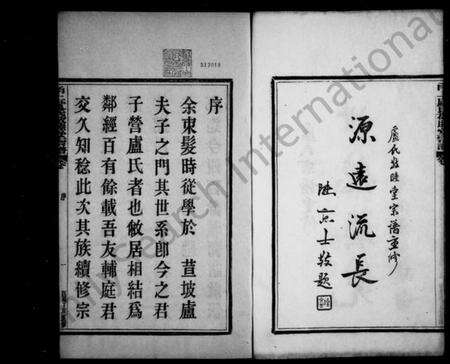 源遠流長
盧氏敦睦堂宗譜重修
敬題
序
余束髮時從學於 萱坡盧
夫子之門其世系卽今之君
子營盧氏者也敝居相結爲
鄰經百有餘載吾友輔庭君
交久知稔此次其族續修宗
序
313018
Research International